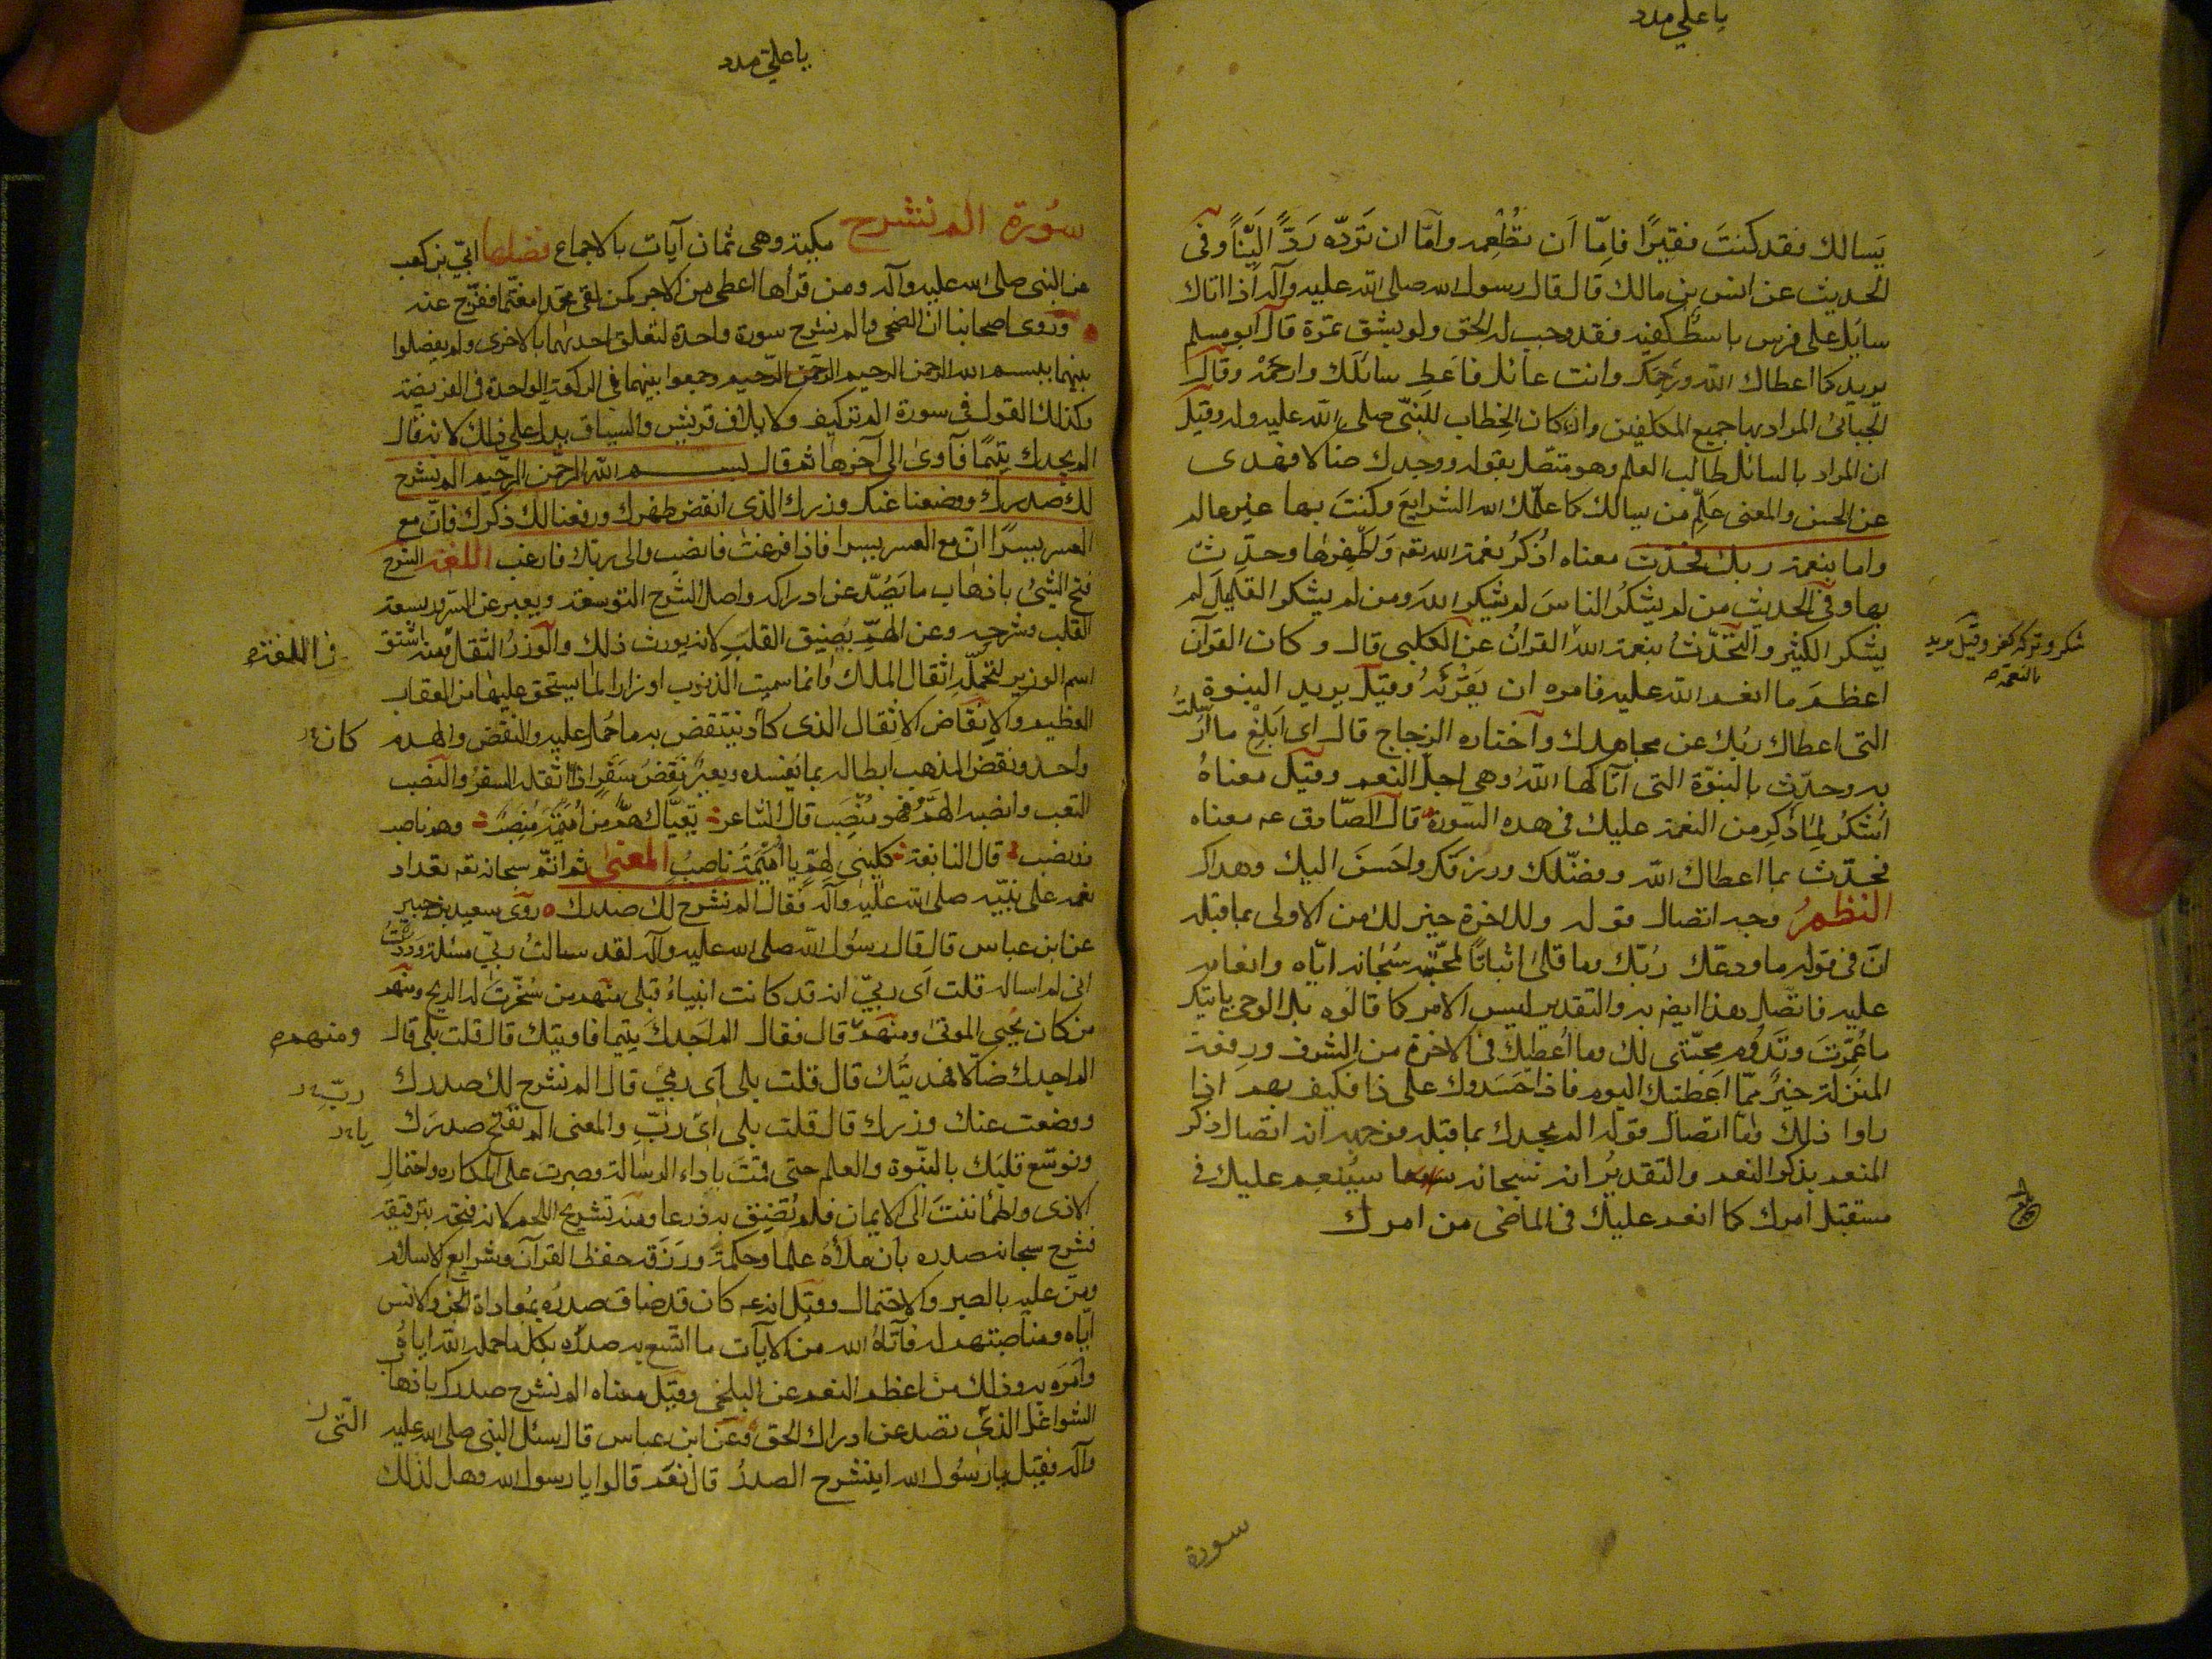 يا علي مدد
يسالك فقد كنت فقيرًا فامّا ان تطعمه وامّا ان تردّه ردًّا ليّنًا وفى
الحديث عن انس بن مالك قال قال رسول الله صلى الله عليه وآله اذا اتاك
سايل على فرس باسط كفيه فقد وجب له الحق ولو بشق تمرة قال ابو مسلم
يريد كما اعطاك الله ورحمك وانت عائل فاعط سائلك وارحمه وقال
الجبائى المراد بها جميع المكلفين وان كان الخطاب للنبى صلى الله عليه وله وقيل
ان المراد بالسائل طالب العلم وهو متصل بقوله ووجدك ضالا فهدى
عن الحسن والمعنى علّم من يسالك كما علّمك الله الشرايع وكنت بها غير عالم
واما بنعمة ربك فحدّث معناه اذكر نعمة الله تعه واظهرها وحدّث
بها وفى الحديث من لم يشكر الناس لم يشكر الله ومن لم يشكر القليل لم
يشكر الكثير والتحدّث بنعمة الله
شكر وتركه كفر وقيل يريد
بالنعمة
القرآن عن الكلبى قال وكان القرآن
اعظم ما انعم الله عليه فامره ان يقرئه وقيل يريد النبوة
التى اعطاك ربك عن مجاهد واختاره الزجاج قال اى ابلغ ما ارسلت
به وحدّث بالنبوّة التى آتاكها الله وهى اجلّ النعم وقيل معناه
اشكر لما ذكر من النعمة عليك فى هذه السورة قال الصّادق عه معناه
فحدّث بما اعطاك الله وفضّلك ورزقك واحسن اليك وهداك
النظم وجه اتصال قوله وللاخرة خير لك من الاولى بما قبله
انّ فى قوله ما ودعك ربّك وما قلى اثباتًا لمحبته سبحانه ايّاه وانعامه
عليه فاتّصل هذا ايضه به والتقدير ليس الامر كما قالوه بل الوحى ياتيك
ما عمّرت وتدوم محبّتى لك وما اعطيك فى الاخرة من الشرف ورفعة
المنزلة خير ممّا اعطيتك اليوم فاذا حسدوك على ذا فكيف بهم اذا
راوا ذلك واما اتصال قوله الم يجدك بما قبله فوجهه انه اتصال ذكر
المنعم بذكر النعم والتقدير انه سبحانه سينعم عليك فى
مستقبل امرك كما انعم عليك فى الماضى من امرك
سورة
يا علي مدد
سورة الم نشرح مكية وهى ثمان آيات بالاجماع فضلها ابىّ بن كعب
عن النبى صلى الله عليه وآله ومن قرأها اعطى من الاجر كمن لقى محمدا مغتما ففرّج عنه
وروى اصحابنا ان الضحى والم نشرح سورة واحدة لتعلق احديهما بالاخرى ولم يفصلوا
بينهما ببسم الله الرحمن الرحيم وجمعوا بينهما فى الركعة الواحدة فى الفريضة
وكذلك القول فى سورة الم تر كيف ولايلاف قريش والسياق يدل على ذلك لانه قال
الم يجدك يتيمًا فآوى الى آخرها ثم قال بسم الله الرحمن الرحيم الم نشرح
لك صدرك ووضعنا عنك وزرك الذى انقض ظهرك ورفعنا لك ذكرك فانّ مع
العسر يسرًا انّ مع العسر يسرا فاذا فرغت فانصب والى ربك فارغب اللغة الشرح
فتح الشىء باذهاب ما يصدّ عن ادراكه واصل الشرح التوسعة ويعبر عن السرور بسعة
القلب وشرحه وعن الهمّ بضيق القلب لانه يورث ذلك والوزر الثقل
فى اللغة
ومنه اشتق
اسم الوزير لتحمّله اثقال الملك وانما سميت الذنوب اوزارا لما يستحق عليها من العقاب
العظيم والانقاض الاثقال الذى كاد ينتقض به ما حمل عليه والنقض والهدم
واحد ونقض المذهب ابطاله بما يفسده وبعير نقض سفر اذا اثقله السفر والنصب
كانه
التعب وانصبه الهمّ فهو منصب قال الشاعر تعنّاك همّ من اميمة منصب وهم ناصب
ذو نصب قال النابغة كلينى لهمّ يا اميمة ناصب المعنى ثم اتمّ سبحانه تعه تعداد
نعمه على نبيّه صلى الله عليه وآله فقال الم نشرح لك صدرك روى سعيد بن جبير
عن ابن عباس قال قال رسول الله صلى الله عليه وآله لقد سالت ربى مسئلة وددت
انى لم اساله قلت اى ربى انه قد كانت انبياء قبلى منهم من سخرت له الريح ومنهم
من كان يحيى الموتى ومنهم قال فقال الم اجدك يتيما فاويتك قال قلت بلى قال
ومنهم
الم اجدك ضالا فهديتك قال قلت بلى اى ربى قال الم نشرح لك صدرك
ربّ
ووضعت عنك وزرك قال قلت بلى اى ربّ والمعنى الم نفتح صدرك
يا
ونوسّع قلبك بالنبّوة والعلم حتى قمت باداء الرسالة وصبرت على المكاره واحتمال
الاذى واطمأننت الى الايمان فلم تضيق به ذرعا ومنه تشريح اللحم لانه فتحه بترقيقه
فشرح سبحانه صدره بان ملأه علما وحكمة ورزقه حفظ القرآن وشرايع الاسلام
ومنّ عليه بالصبر والاحتمال وقيل انه عه كان قد ضاق صدره بمعاداة الجن والانس
ايّاه ومناصبتهم له فآتاه الله من الآيات ما اتسع به صدره بكل ما حمله الله اياه
وامره به وذلك من اعظم النعم عن البلخى وقيل معناه الم نشرح صدرك باذهاب
الشواغل الذى تصد عن ادراك الحق وعن ابن عباس قال سئل النبى صلى الله عليه
التى
وآله فقيل يا رسول الله اينشرح الصدر قال نعم قالوا يا رسول الله وهل لذلك